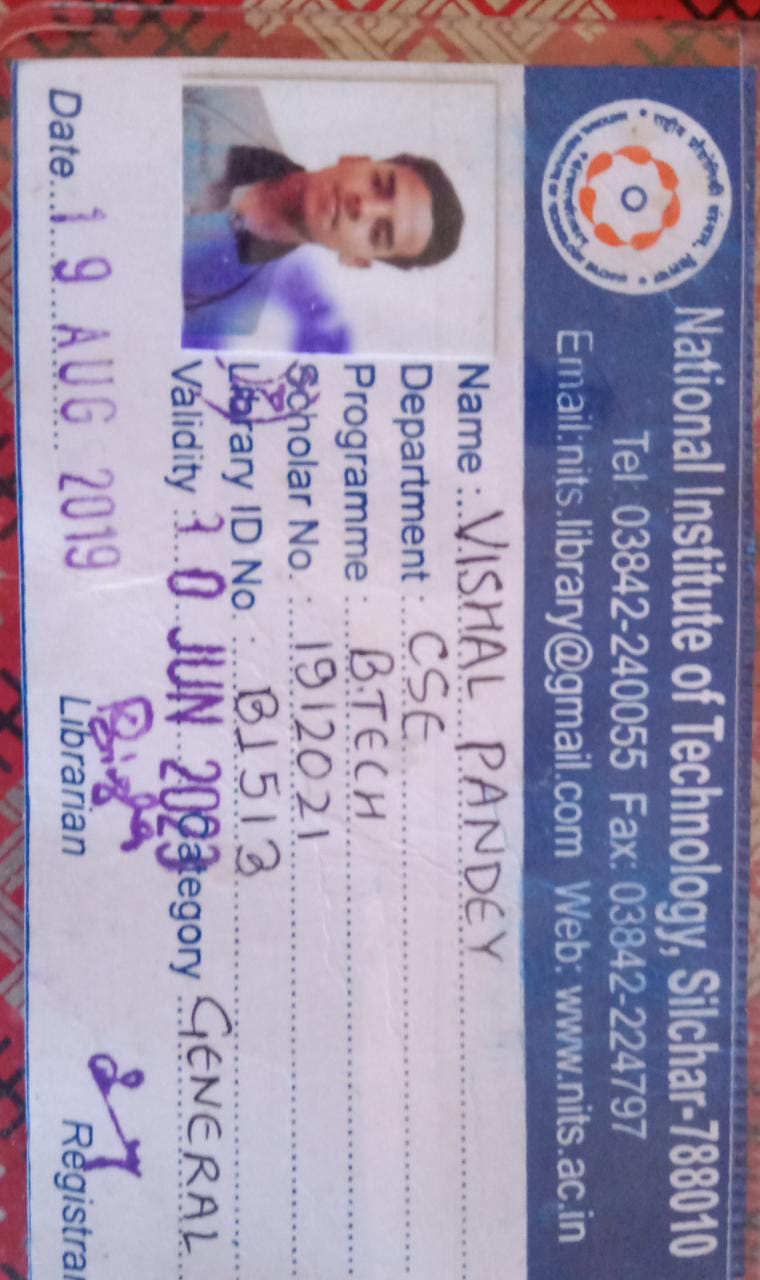 राष्ट्रीय प्रौद्योगिकी संस्थान, सिलचर
National Institute of Technology, Silchar-788010
Tel 03842-240055 Fax: 03842-224797
Email:nits.library@gmail.com Web: www.nits.ac.in
Name : VISHAL PANDEY
Department : CSE
Programme : B.TECH
Scholar No. : 1912021
Library ID No. : B1513
Validity : 30 JUN 2023 Category GENERAL
Date 19 AUG 2019 Librarian Registrar